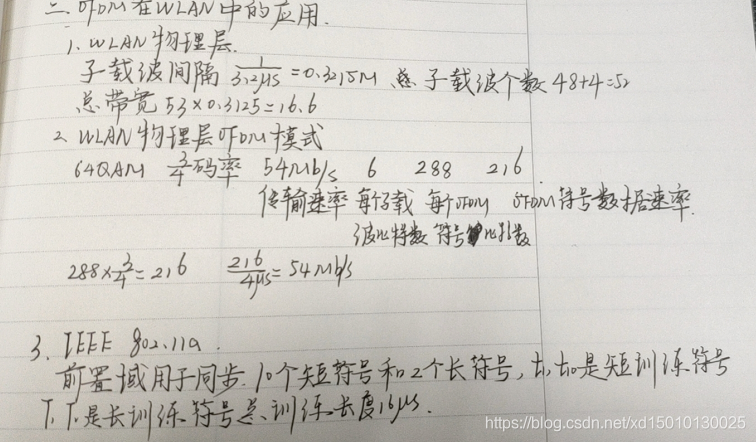 二.OFDM在WLAN中的应用.
1.WLAN物理层.
子载波间隔 1/3.2μs=0.3215M 总子载波个数48+4=52
总带宽 53×0.3125=16.6
2.WLAN物理层OFDM模式
64QAM 3/4码率 54Mb/s 6 288 216
传输速率 每个子载 每个OFDM OFDM符号数据速率.
波比特数 符号比特数
288×3/4=216 216/4μs=54Mb/s
3.IEEE 802.11a.
前置域用于同步.10个短符号和2个长符号,t1 t10是短训练符号
T1 T2是长训练符号总训练长度16μs.
https://blog.csdn.net/xd15010130025